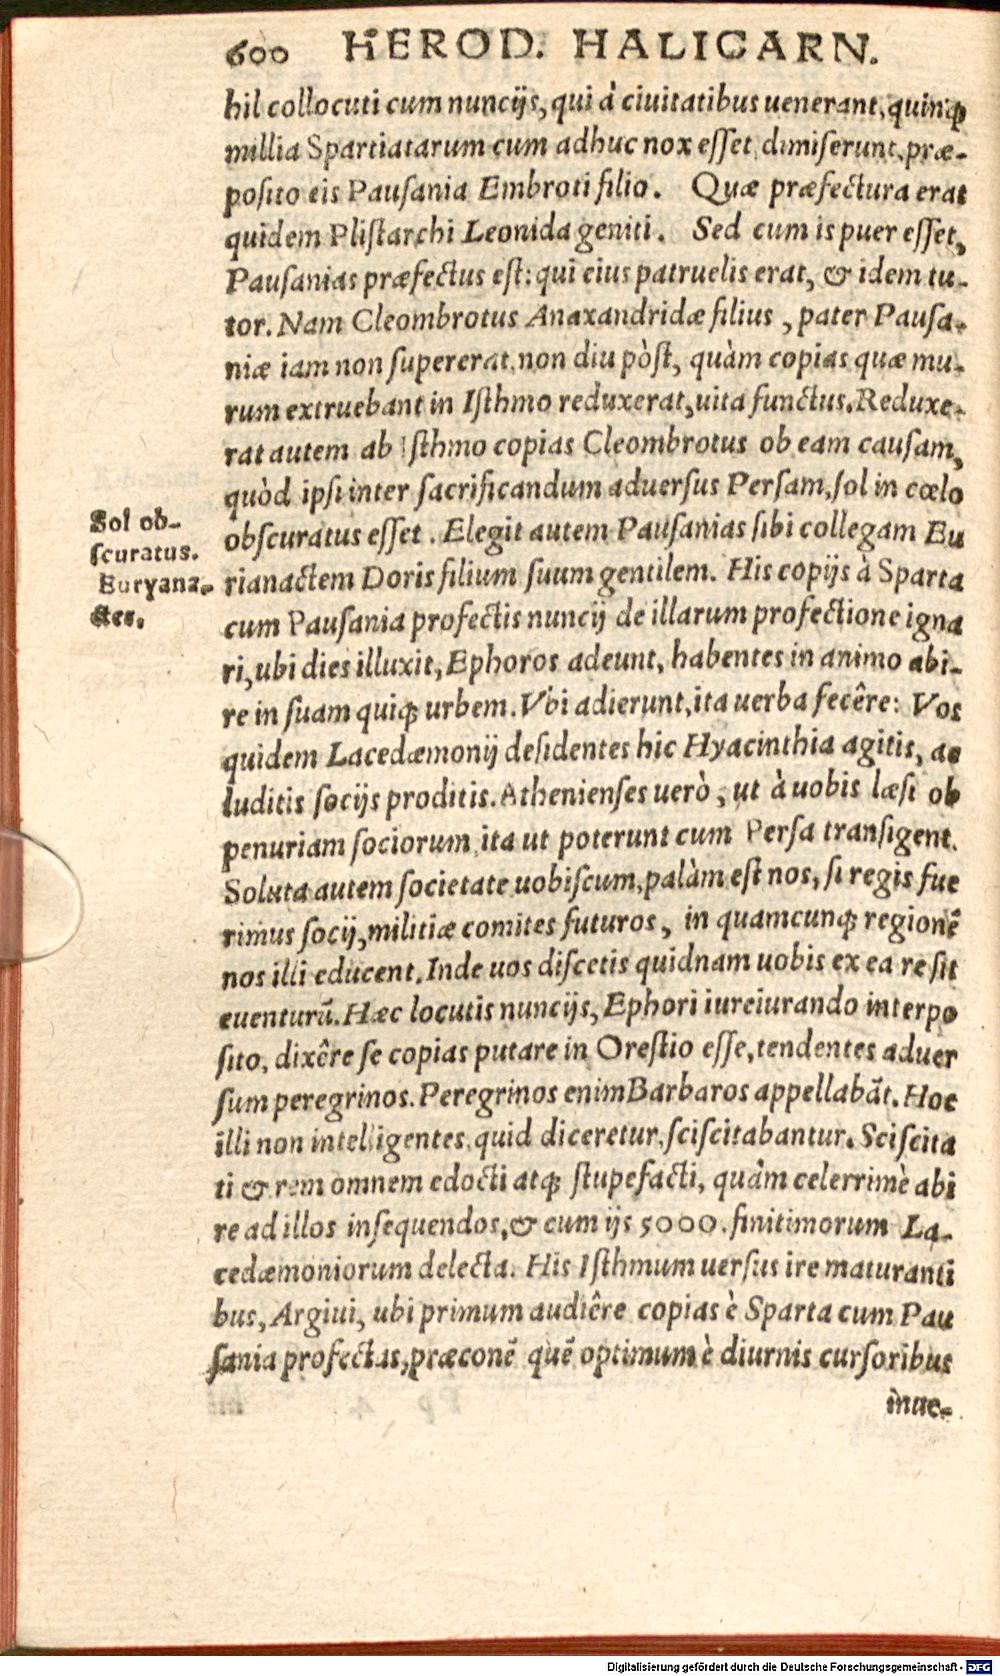 600 HEROD. HALICARN.
hil collocuti cum nuncijs, qui à ciuitatibus uenerant, quinqꝫ
millia Spartiatarum cum adhuc nox eſſet dimiſerunt, præ-
poſito eis Pauſania Embroti filio. Quæ præfectura erat
quidem Pliſtarchi Leonida geniti. Sed cum is puer eſſet,
Pauſanias præfectus eſt: qui eius patruelis erat, & idem tu-
tor. Nam Cleombrotus Anaxandridæ filius, pater Pauſa-
niæ iam non ſupererat, non diu pòſt, quàm copias quæ mu-
rum extruebant in Iſthmo reduxerat, uita functus. Reduxe-
rat autem ab Iſthmo copias Cleombrotus ob eam cauſam,
quòd ipſi inter ſacrificandum aduerſus Perſam, ſol in cœlo
obſcuratus eſſet. Elegit autem Pauſanias ſibi collegam Eu
rianactem Doris filium ſuum gentilem. His copijs à Sparta
cum Pauſania profectis nuncij de illarum profectione igna
ri, ubi dies illuxit, Ephoros adeunt, habentes in animo abi-
re in ſuam quiqꝫ urbem. Vbi adierunt, ita uerba fecêre: Vos
quidem Lacedæmonij deſidentes hic Hyacinthia agitis, ac
luditis ſocijs proditis. Athenienſes uerò, ut à uobis læſi ob
penuriam ſociorum ita ut poterunt cum Perſa tranſigent.
Soluta autem ſocietate uobiſcum, palàm eſt nos, ſi regis fue
rimus ſocij, militiæ comites futuros, in quamcunqꝫ regionẽ
nos illi educent. Inde uos diſcetis quidnam uobis ex ea re ſit
euenturũ. Hæc locutis nuncijs, Ephori iureiurando interpo
ſito, dixêre ſe copias putare in Oreſtio eſſe, tendentes aduer
ſum peregrinos. Peregrinos enim Barbaros appellabãt. Hoc
illi non intelligentes, quid diceretur, ſciſcitabantur. Sciſcita
ti & rem omnem edocti atqꝫ ſtupefacti, quàm celerrimè abi
re ad illos inſequendos, & cum ijs 5000. finitimorum La-
cedæmoniorum delecta. His Iſthmum uerſus ire maturanti
bus, Argiui, ubi primum audiêre copias è Sparta cum Pau
ſania profectas, præconẽ quẽ optimum è diurnis curſoribus
inue-
Sol ob-
ſcuratus.
Euryana-
ctes.
Digitalisierung gefördert durch die Deutsche Forschungsgemeinschaft - DFG